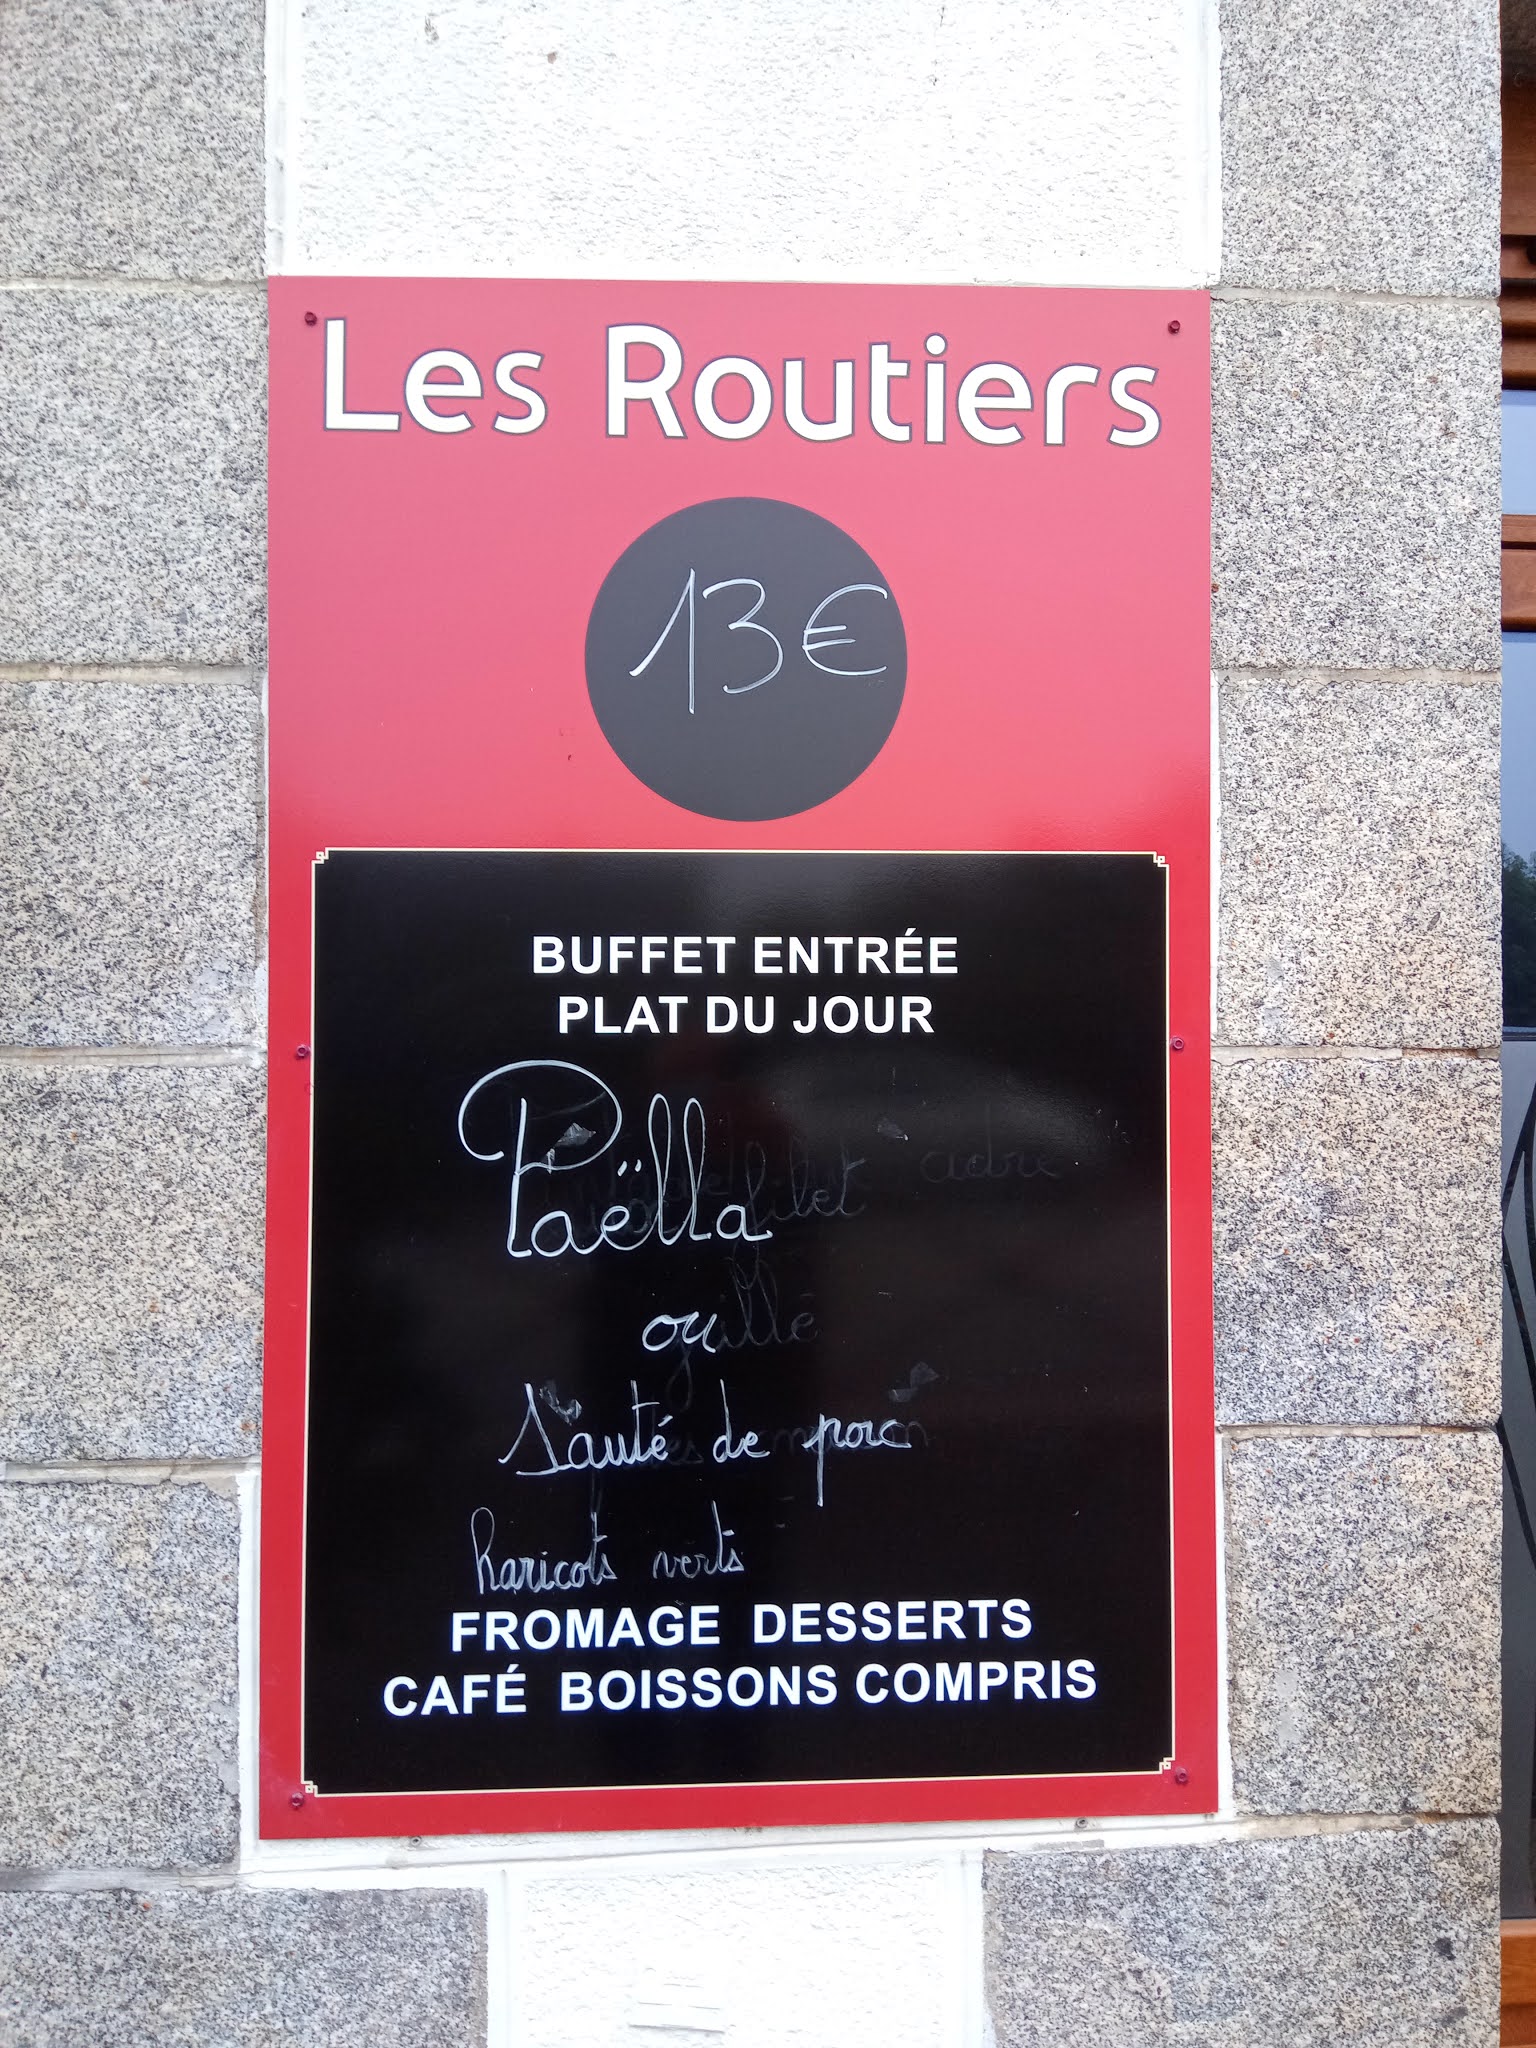 Les Routiers
13€
BUFFET ENTRÉE
PLAT DU JOUR
Paëlla
ou
Sauté de porc
haricots verts
FROMAGE DESSERTS
CAFÉ BOISSONS COMPRIS